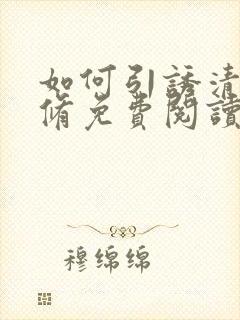 如何引誘清
脩免費閱讀
穆绵绵